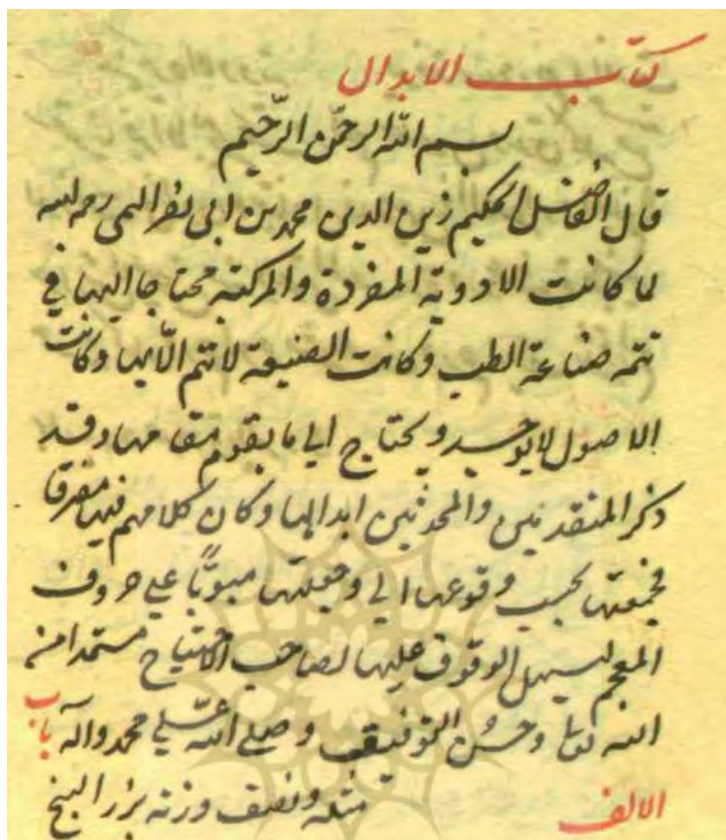 كتاب الابدال
بسم الله الرحمن الرحيم
قال الفاضل الحكيم زين الدين محمد بن ابى نصر رحمه الله
لما كانت الادوية المفردة والمركبة محتاجا اليها في
تتمه صناعة الطب وكانت الصنيعة لا تتم الّا بها وكانت
الاصول لا يوجد ويحتاج الى ما يقوم مقامها وقد
ذكر المتقدمين والمحدثين ابدالها وكان كلامهم فيها متفرقا
فجمعتها بحسب وقوعها الي وجعلتها مبوبًا علي حروف
المعجم ليسهل الوقوف عليها لصاحب الاحتياج مستمدا من
الله تعا وحسن التوفيق وصلى الله على محمد وآله باب
الالف مثله ونصف وزنه بزر البنج